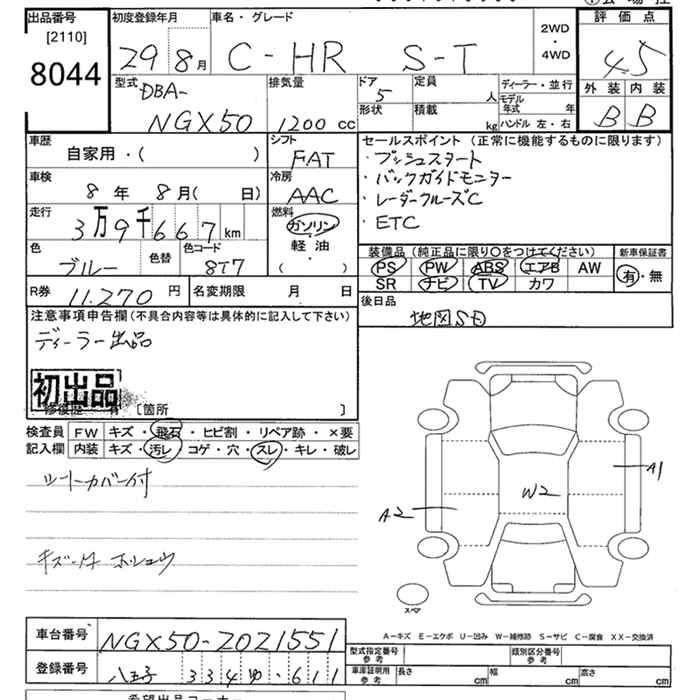 出品番号 初度登録年月 車名・グレード 2WD 評価点
[2110]
8044 29 8月 C-HR S-T ・4WD 4.5
型式 DBA- 排気量 ドア 5 定員 人 ディーラー・並行 外装 内装
形状 積載 kg モデル年式 年
NGX50 1200 cc ハンドル 左・右 B B
車歴 自家用・( ) シフト FAT セールスポイント (正常に機能するものに限ります)
・プッシュスタート
車検 8年 8月( 日) 冷房 AAC ・バックガイドモニター
・レーダークルーズC
走行 3万9千667km 燃料 ガソリン ・ETC
軽油
( )
色 ブルー 色替 色コード 8T7 装備品 (純正品に限り〇をつけてください) 新車保証書
PS PW ABS エアB AW 有・無
SR ナビ TV カワ
R券 11.270円 名変期限 月 日 後日品
地図SD
注意事項申告欄(不具合内容等は具体的に記入して下さい)
ディーラー出品
初出品
修復歴 有 [箇所 ]
検査員 FW キズ・飛石・ヒビ割・リペア跡・×要
記入欄 内装 キズ・汚レ・コゲ・穴・スレ・キレ・破レ
シートカバー付
A1
W2
A2
スペア
A-キズ E-エクボ U-凹み W-補修跡 S-サビ C-腐食 XX-交換済
車台番号 NGX50-2021551
型式指定番号 参考 類別区分番号 参考
登録番号 八王子 334 ゆ ・611 車庫証明用 参考 長さ cm 幅 cm 高さ cm
希望出品コーナー